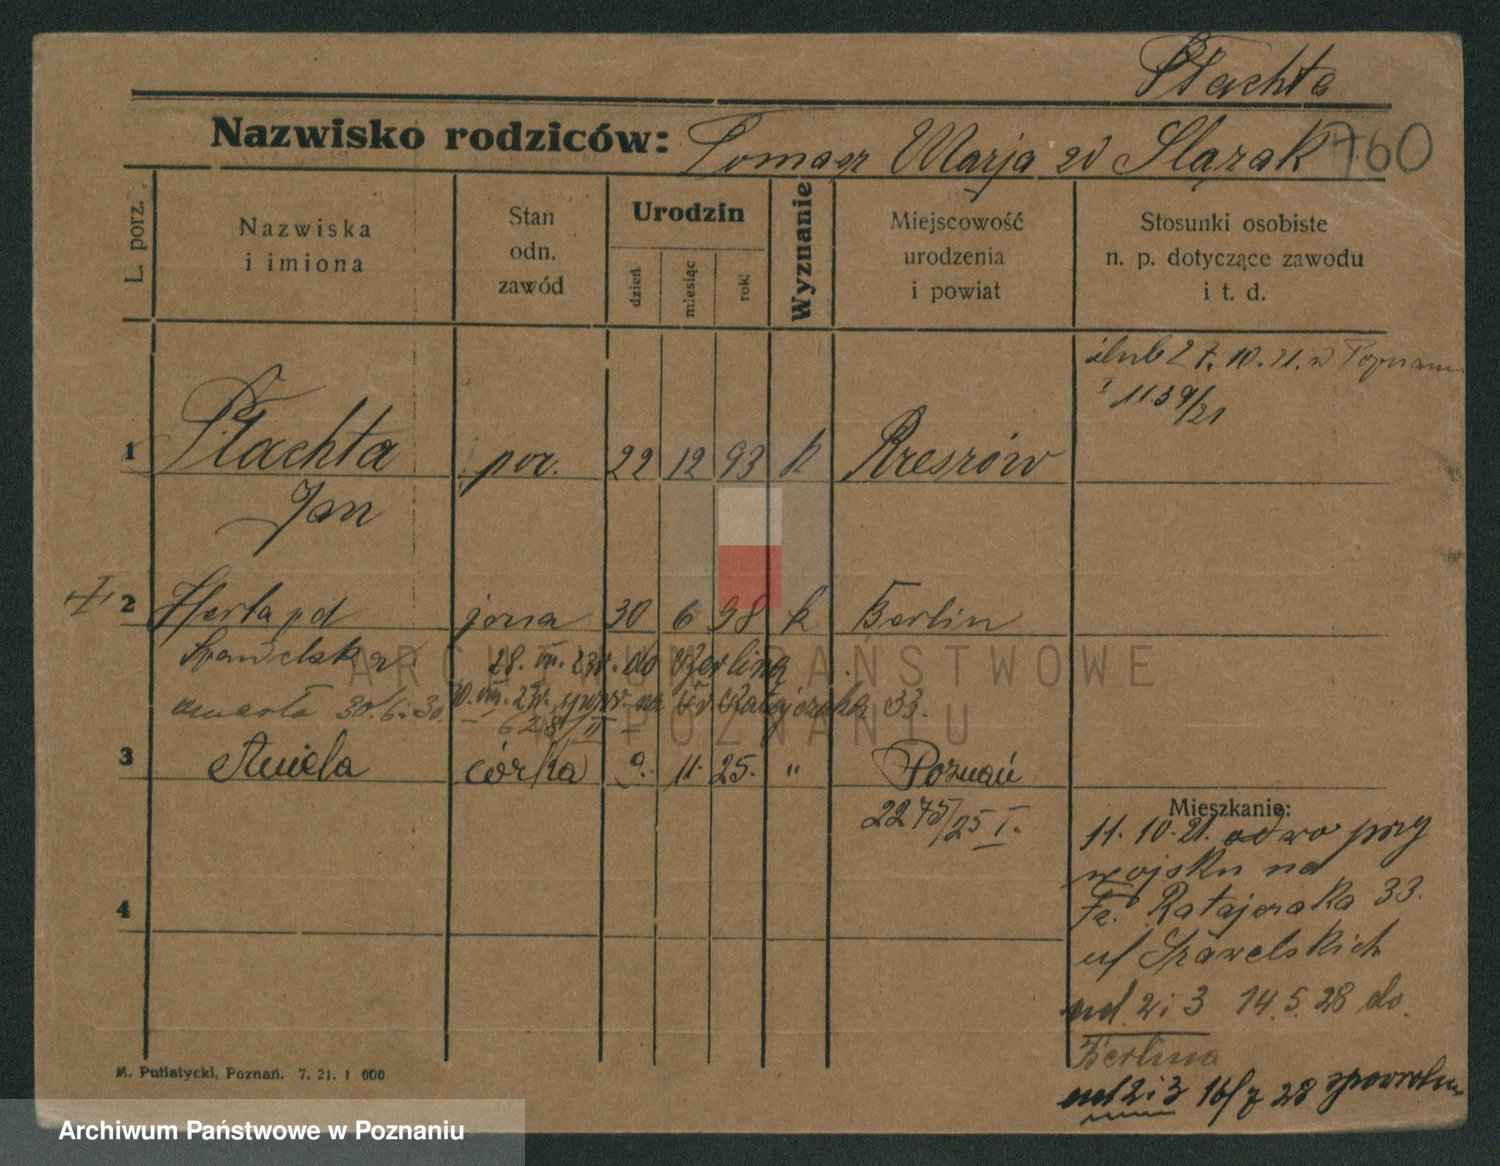 Płachta
Nazwisko rodziców: Tomasz Marja zd Slązak 760
L. porz.
Nazwiska
i imiona
Stan
odn.
zawód
Urodzin
dzień
miesiąc
rok
Wyznanie
Miejscowość
urodzenia
i powiat
Stosunki osobiste
n. p. dotyczące zawodu
i t. d.
ślub 27. 10. 21. w Poznaniu
I 1139/21
1 Płachta por. 22 12 93 k Rzeszów
Jan
2 Herta zd żona 30 6 98 k Berlin
28. VII. 23r. do Berlina
zmarła 30. 6. 30. 30. VII. 23r. na Fr. Ratajczaka 33.
628/II
3 Aniela córka 9. 11. 25. " Poznań
2275/25 I.
4
Mieszkanie:
11. 10. 21. przy
wojsku na
Fr. Ratajczaka 33.
u/ Szawelskich
ad. 2 i 3 14. 5. 28 do
Berlina
ad 2 i 3 16/7 28 zpowrotem
M. Putiatycki, Poznań. 7. 21. 1 000
ARCHIWUM PAŃSTWOWE
W POZNANIU
Archiwum Państwowe w Poznaniu